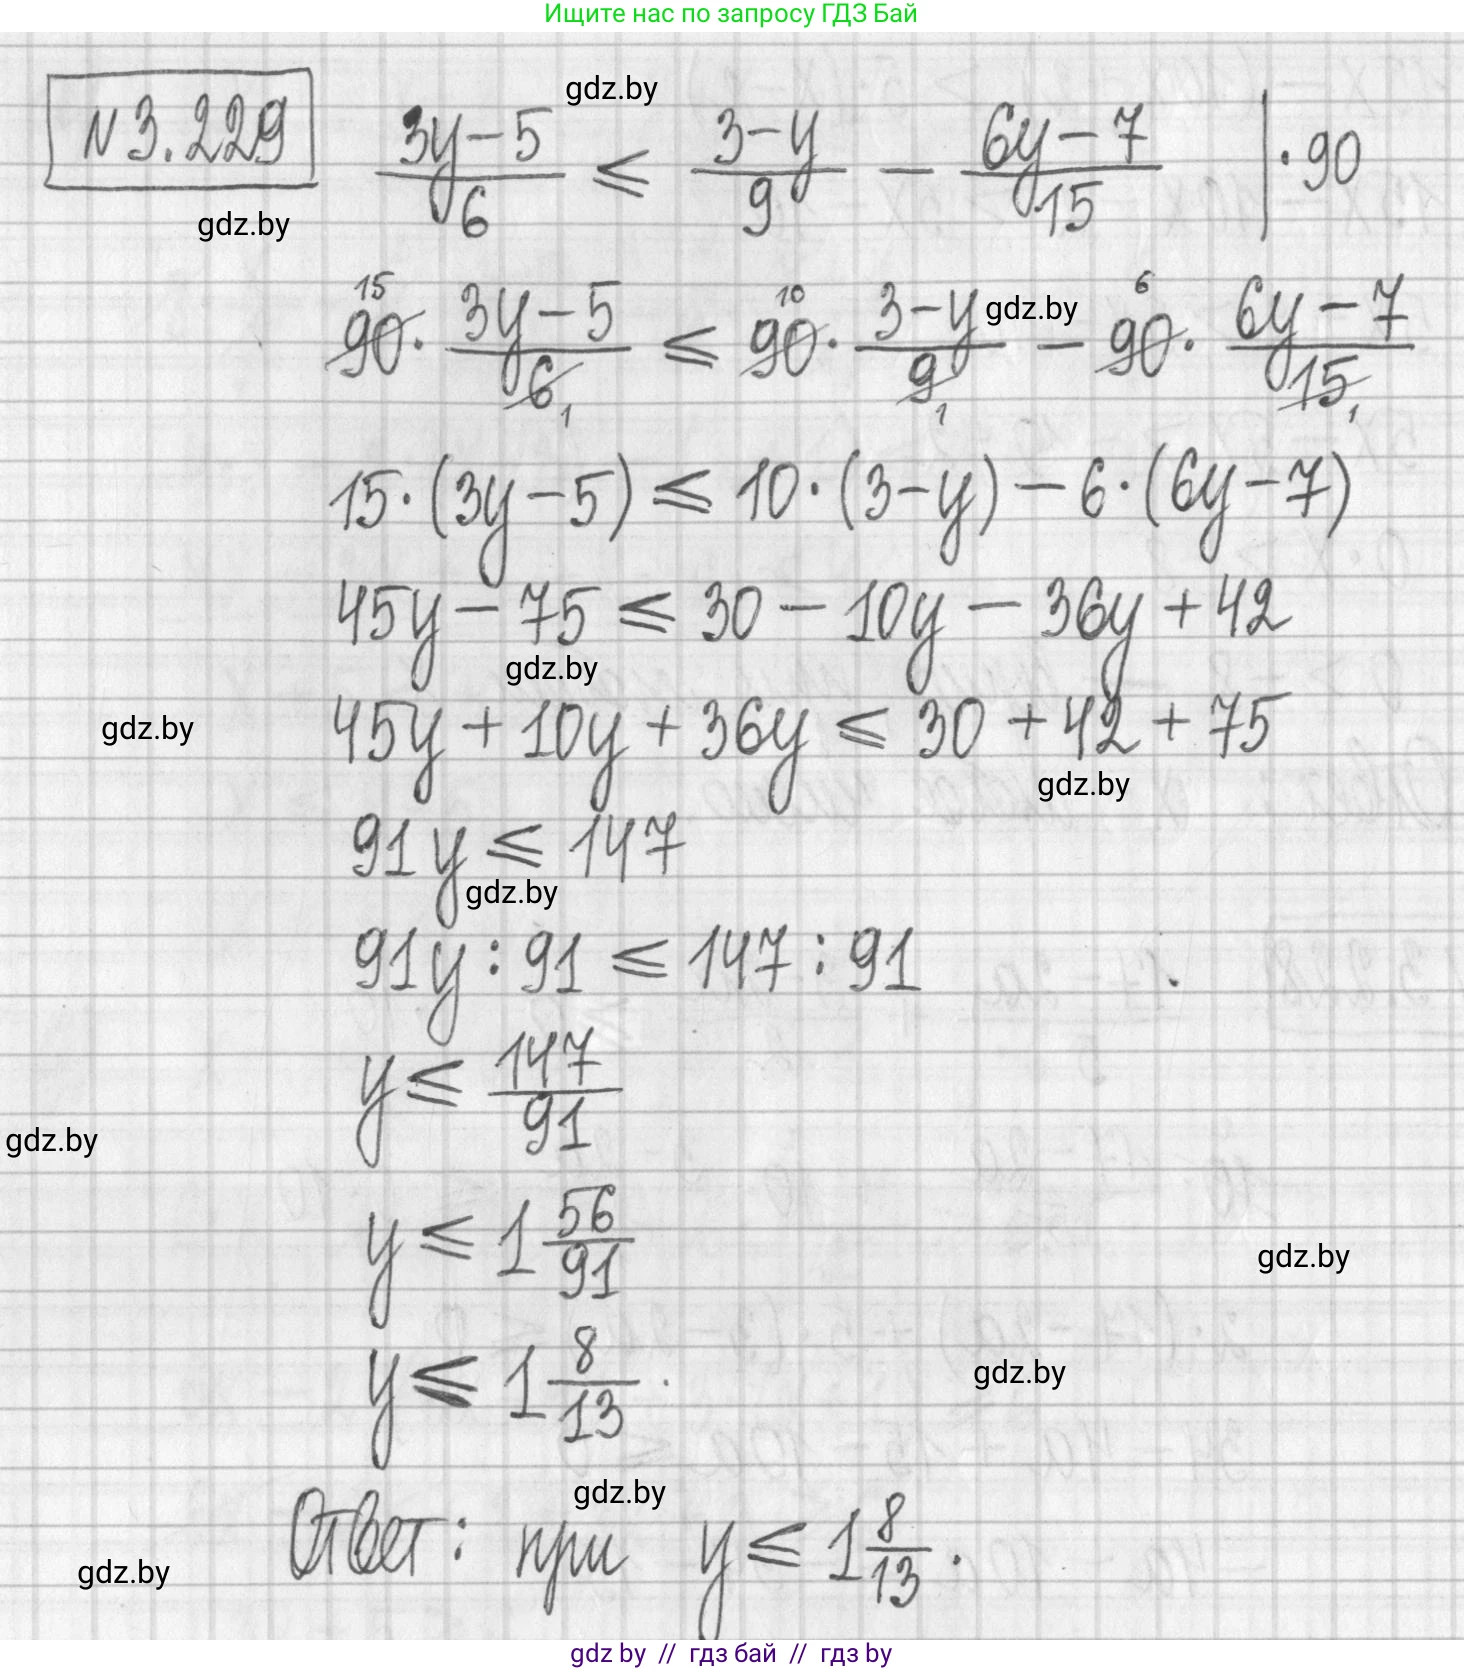 Ищите нас по запросу ГДЗ Бай
gdz.by
№ 3.229 (3y-5)/6 ≤ (3-y)/9 - (6y-7)/15 | · 90
gdz.by
15 10 6
90 · (3y-5)/6 ≤ 90 · (3-y)/9 - 90 · (6y-7)/15
gdz.by
1 1 1
15 · (3y-5) ≤ 10 · (3-y) - 6 · (6y-7)
45y - 75 ≤ 30 - 10y - 36y + 42
gdz.by
45y + 10y + 36y ≤ 30 + 42 + 75
gdz.by
gdz.by
91y ≤ 147
gdz.by
91y : 91 ≤ 147 : 91
y ≤ 147/91
gdz.by
y ≤ 1 56/91
gdz.by
y ≤ 1 8/13.
gdz.by
gdz.by
Ответ: при y ≤ 1 8/13.
gdz.by
gdz by // гдз бай // gdz by